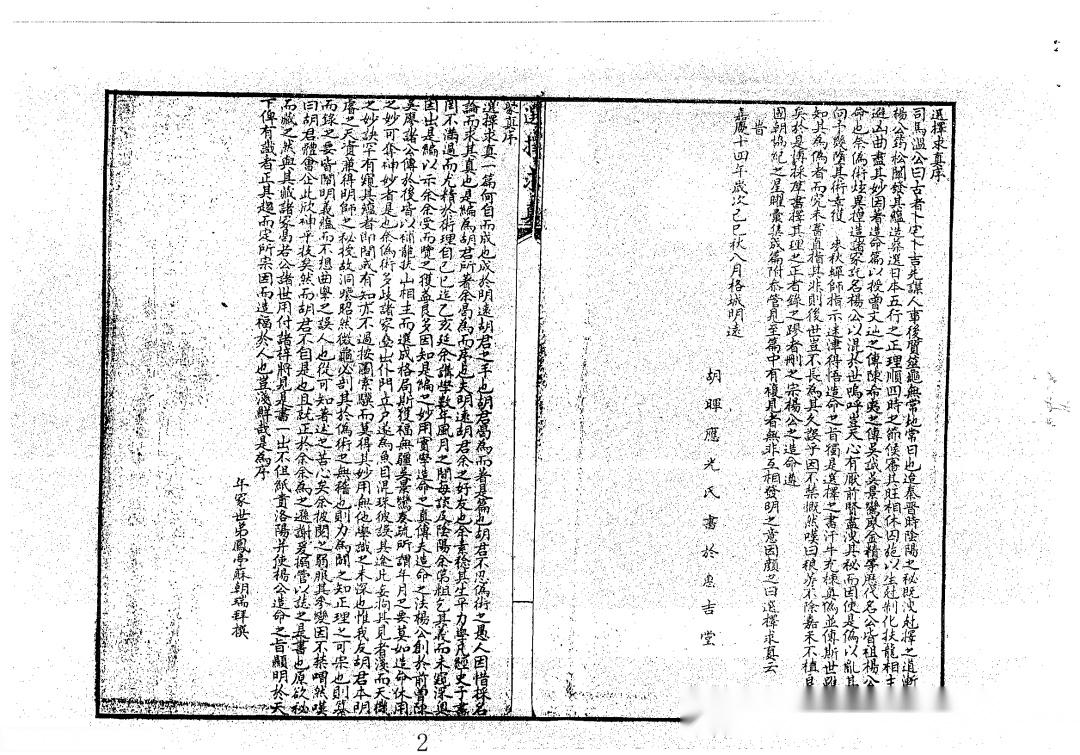 選擇求真序
司馬溫公曰古者卜宅卜吉先謀人事後質筮龜無常地常日也造秦晉時陰陽之秘既洩尅擇之道漸
楊公筠松闡發其蘊造葬選日本五行之正理順四時之節候審其旺相休囚施以生尅制化扶龍相主
避凶曲盡其妙因著造命篇以授曾文辿之傳陳希夷之傳吳景鸞取金精等歷代名公皆祖楊公
命也奈偽術坌異撰造諸家訖名楊公以混於世嗚呼豈天心有厭前賢盡洩其秘而因使是偽以亂其
向予幾墮其術幸後 朱秋嬋師指示迷津得悟造命之旨獨是選擇之書汗牛充棟真偽並傳斯世雖
知其為偽者而究未嘗直指其非則後世豈不長為其久誤乎因不禁慨然嘆曰稂莠不除嘉禾不植
矣於是博採羣書擇其理之正者錄之謬者刪之宗楊公之造命遵
國朝協紀之星曜彙集成篇附叅管見至篇中有複見者無非互相發明之意因顏之曰選擇求真云
旹
嘉慶十四年歲次己巳秋八月格城明遠
胡暉應光氏書於惠吉堂
選擇求真
叙真序
選擇求真一篇何自而成也成於明遠胡君之手也胡君曷為而著是篇也胡君不忍偽術之愚人因惜採名
論而求其真也是編為胡君所著余曷為而序也夫明遠胡君余之好友也余素稔其生平力學凡經史子書
罔不滿過而尤精於術理自己巳迄乙亥延余講學數年風月之間每談及陰陽余第粗乞其義而未窺深奧
因出是編以示余余受而覽之獲益良多因知是編之妙用實學造命之真傳夫造命之法楊公創於前曾陳
吳廖諸公傳於後皆以補龍扶山相主而選成格局斯獲福無疆吳景鸞奏疏所謂年月之要莫如造命体用
之妙可奪神妙者是也奈偽術多歧諸家叠出作門立戶遂為魚目混珠彼投其途此妄狥其見者淺而天機
之妙訣罕有窺其蘊者即間或有知亦不過按圖索驥而莫得其妙用無他學識之未深也惟我友胡君本明
睿之天資兼得明師之秘授故洞燭昭然微龜必剖其於偽術之無稽也則力為闢之知正理之可宗也則彙
而錄之要皆闡明義蘊而不想曲學之誤人也從可知著述之苦心矣余披閱之弱服其參變因不禁喟然嘆
曰胡君體會企此欣神乎技矣然而胡君不自是也且就正於余余為之遜謝爰搦管以誌之是書也原欲秘
而藏之然與其藏諸家曷若公諸世用付諸梓將見是書一出不但紙貴洛陽并使楊公造命之旨顯明於天
下俾有識者正其趨而定所宗因而造福於人也豈淺鮮哉是為序
年家世弟鳳亭蘇朝瑞拜撰
2